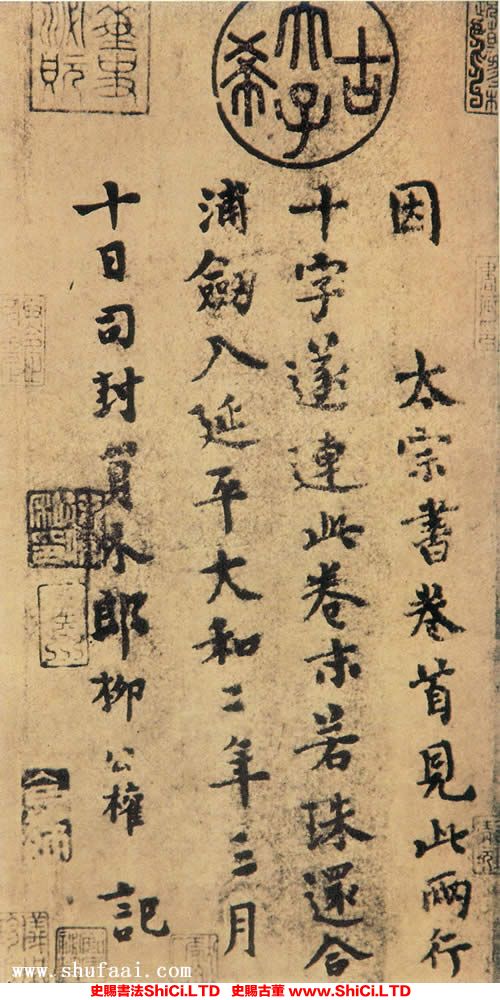 古希天子
因 太宗書卷首見此兩行
十字遂連此卷末若珠還合
浦劔入延平大和二年三月
十日司封員外郎柳公權 記
www.shufaai.com
史賜書法ShiCi.LTD 史賜古董 www.ShiCi.LTD